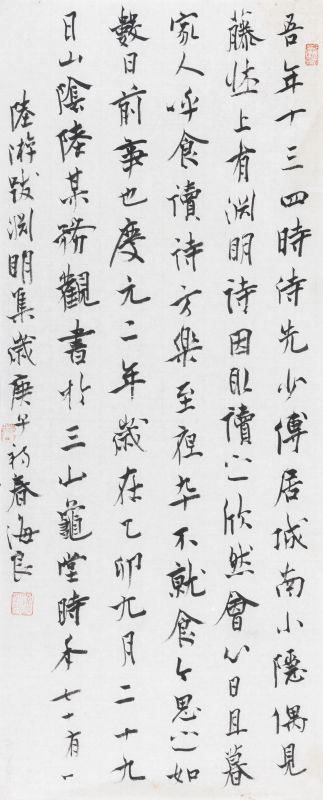 吾年十三四時侍先少傅居城南小隱偶見
藤床上有淵明詩因取讀之欣然會心日且暮
家人呼食讀詩方樂至夜卒不就食今思之如
數日前事也慶元二年歲在乙卯九月二十九
日山陰陸某務觀書於三山龜堂時年七十有一
陸游跋淵明集歲庚午初春海良